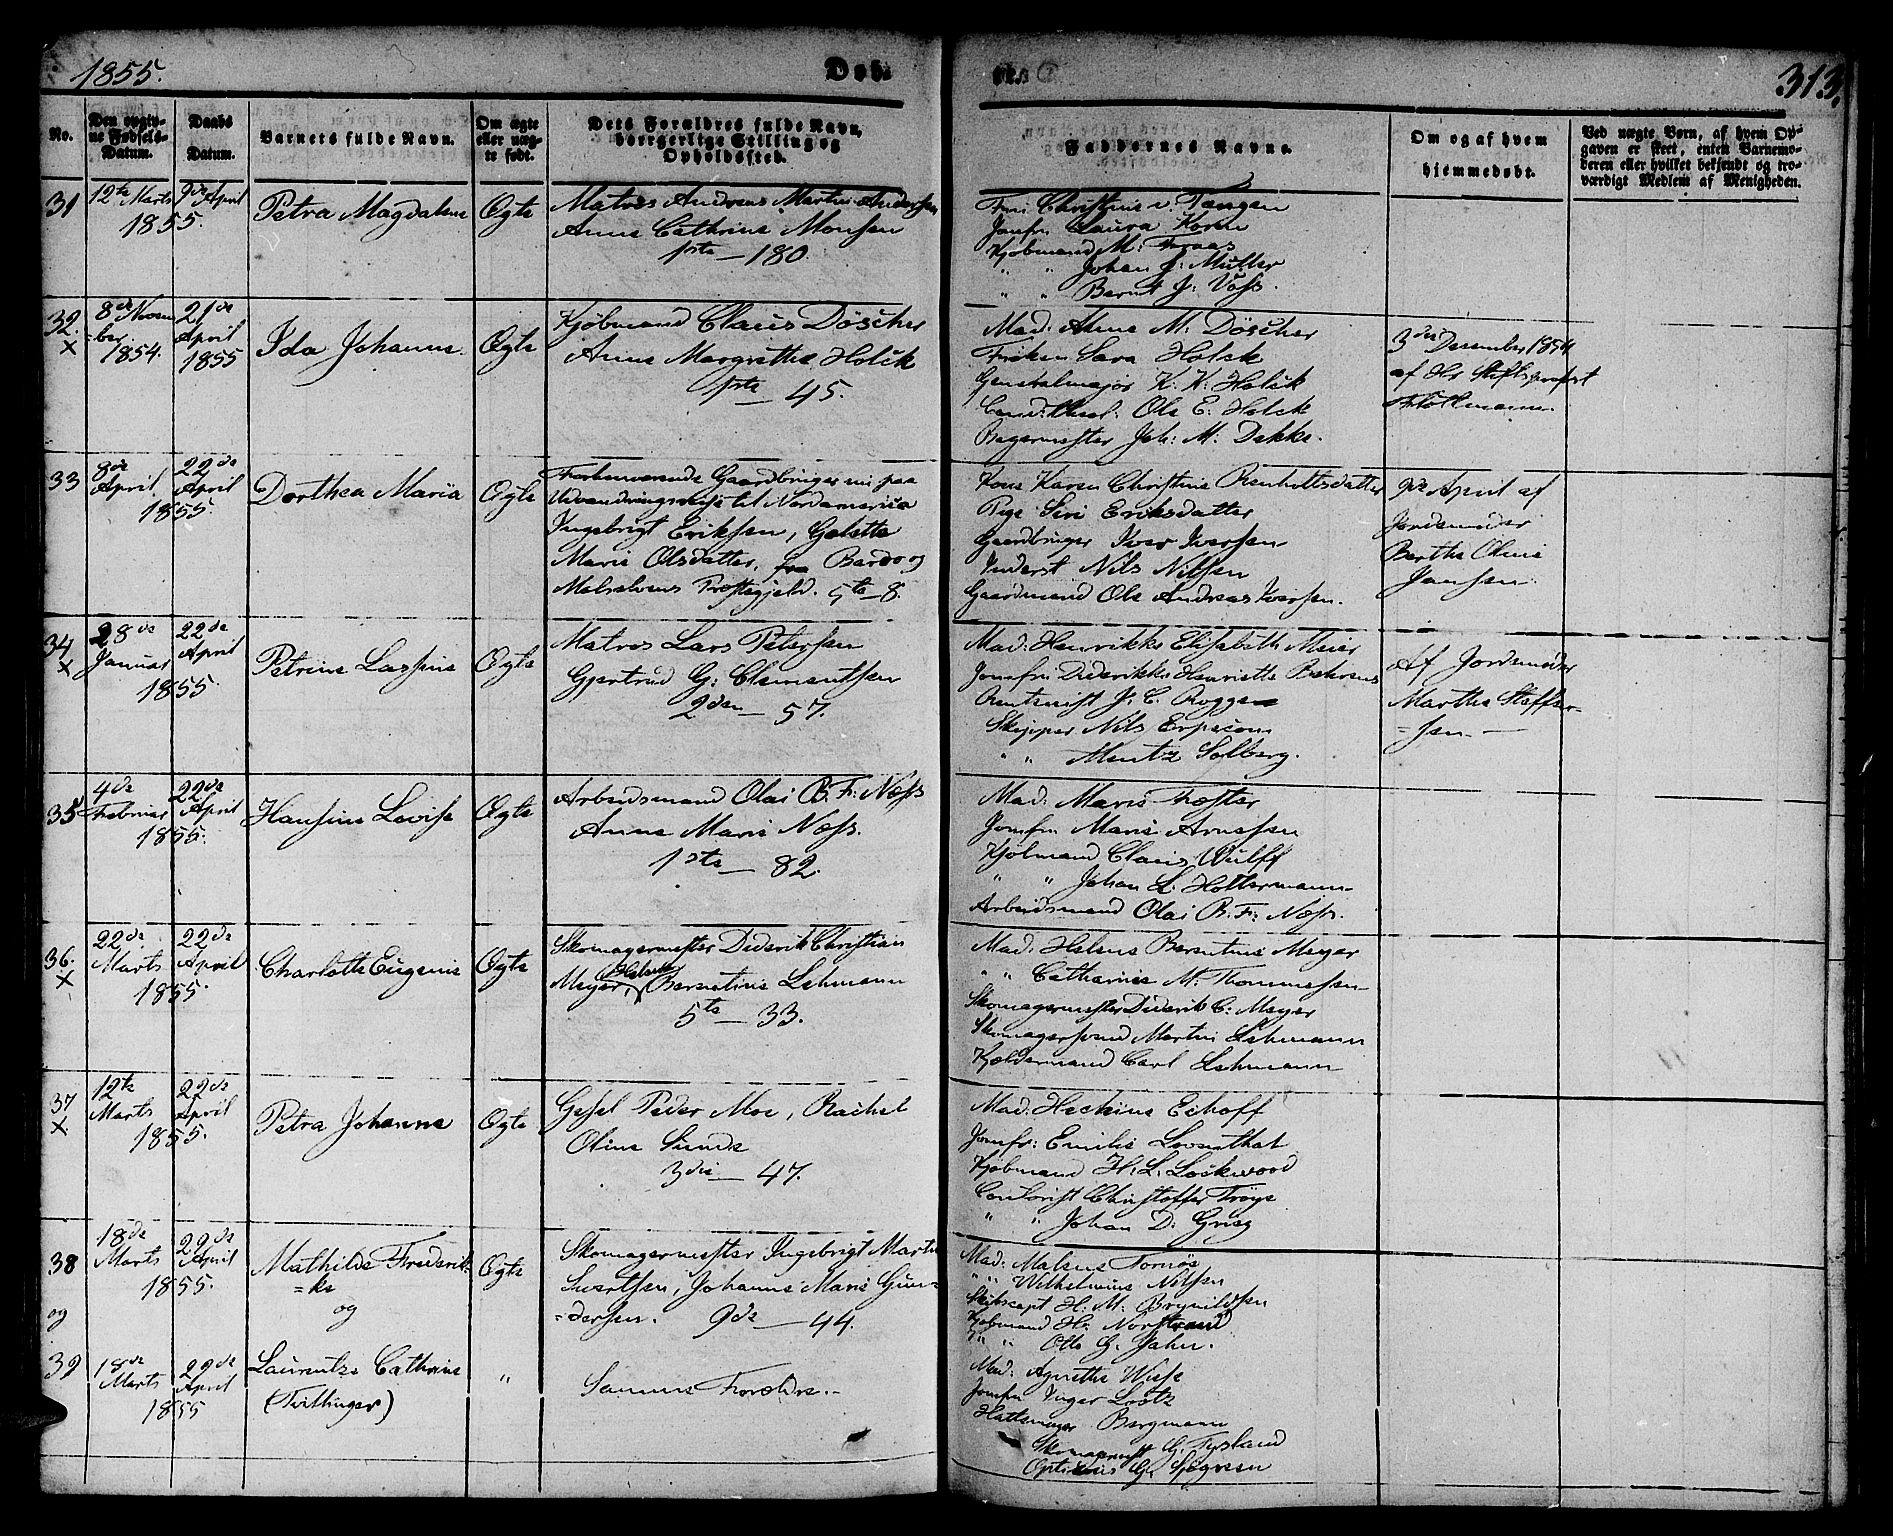 1855.
Døb
313.
No.
Den opgiv-
ne Fødsels-
Datum.
Daabs
Datum.
Barnets fulde Navn.
Om ægte
eller uæg-
te født.
Dets Forældres fulde Navn,
borgerlige Stilling og
Opholdssted.
Faddernes Navne.
Om og af hvem
hjemmedøbt.
Ved uægte Børn, af hvem Op-
gaven er skeet, enten Barnemo-
deren eller hvilket bekjendt og tro-
værdigt Medlem af Menigheden.
31
12te Marts
1855.
9de April
Petra Magdalene
Ægte
Matros Andreas Martin Andersen
Anne Cathrine Monsen
1ste — 180.
Fru Christine v. Tangen
Jomfru Laura Koren
Kjøbmand M. Fraas
" " Johan J: Müller
" " Bernt J: Voss.
32.
X
8de Novem
=ber
1854.
21de
April
1855
Ida Johanne.
Ægte
Kjøbmand Claus Döscher
Anne Margrethe Holck
1ste — 45.
Mad: Anne M. Döscher
Frøken Sara Holck
Generalmajor K. K. Holck
Cand: theol: Ole E. Holck
Bagermester Joh: M. Dekke.
3die December 1854
af Hr Stiftsprovst
33
8de
April
1855.
22de
April
Dorthea Maria
Ægte
Forhenværende Gaardbruger nu paa
Udvandringsreise til Nordamerica
Ingebrigt Eriksen, Geletta
Marie Olsdatter, fra Bardo og
Malselvens Præstegjeld. 5te — 8.
Kone Karen Christine Reinholtsdatter
Pige Siri Eriksdatter
Gaardbruger Iver Iversen
Inderst Nils Nilsen
Gaardmand Ole Andreas Iversen.
9de April af
Jordemoder
Berthe Oline
Jansen.
34
X
28de
Januar
1855.
22de
April
Petrine Lassine
Ægte
Matros Lars Petersen
Gjertrud G: Clementsen
2den — 57.
Mad: Henrikke Elisabeth Meier
Jomfru Diderikke Henriette Behrens
Rentenist J. C. Rogge
Skipper Nils Erpecom
" " Mentz Solberg.
Af Jordemoder
Marthe Steffen-
=sen —
35
4de
Februar
1855.
22de
April
Hansine Lovise
Ægte
Arbeidsmand Olai B. F: Næss
Anne Marie Næss.
1ste — 82.
Mad: Marie Foster
Jomfru Marie Arnesen
Kjøbmand Claus Wulff
" " Johan L. Holtermann
Arbeidsmand Olai B. F: Næss.
36.
X
22de
Marts
1855.
22de
April
Charlotte Eugenie
Ægte
Skomagermester Diderik Christian
Helene
Meyer, Berentine Lehmann
5te — 33.
Mad: Helene Berentine Meyer
" " Catharine M. Thommesen
Skomagermester Diderik C. Meyer
Skomagersvend Martin Lehmann
Kjældermand Carl Lehmann
37
X
12te
Marts
1855.
22de
April
Petra Johanne
Ægte
Gesel Peder Moe, Rachel
Oline Sunde
3die — 47.
Mad: Hechine Echoff
Jomfr: Emilie Loventhal
Kjøbmand H. L. Lockwood
Contorist Christoffer Trøye
" " Johan D. Grieg
38
18de
Marts
1855.
29de
April
Mathilde Frederik-
=ke
og
Ægte
Skomagermester Ingebrigt Martin
Sivertsen, Johanne Marie Gun-
=dersen. 9de — 44.
Mad: Malene Tornøe
" " Wilhelmine Nilsen
Skibscapt H. M. Brynildsen
Kjøbmand H. Norstrand
" " Otto G. Jahn.
og
39
18de
Marts
1855
29de
April
Laurentze Cathrine
(Tvillinger)
"
Samme Forældre.
Mad: Agnethe Wiese
Jomfru Inger Lootz
Hattemager Bergmann
Skomagermest G. Tysland
Opticus G. Sjøgreen